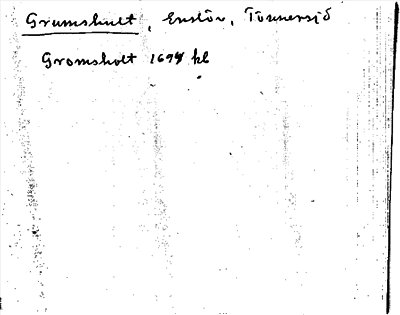 Grumshult, Enslöv, Tönnersjö
Gromsholt 1694 kl